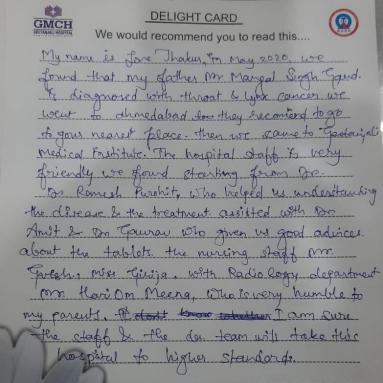 GMCH
GEETANJALI HOSPITAL
DELIGHT CARD
We would recommend you to read this....
My name is Jore Thakur, in May 2020, we
found that my father Mr Mangal Singh Gaud.
is diagnosed with throat & lynx cancer we
went to ahmedabad too they recomend to go
to your nearest place. then we came to Geetanjali
Medical Institute. The hospital staff is very
friendly we found starting from Dr.
Dr. Ramesh Purohit, who helped us understanding
the disease & the treatment assisted with Dr
Amit & Dr Gaurav who given us good advices
about the tablets the nursing staff Mr.
Miss Girija. with Radiology department
Mr. Hari Om Meena, who is very humble to
my parents. I am sure
the staff & the dr. team will take this
hospital to higher standards.